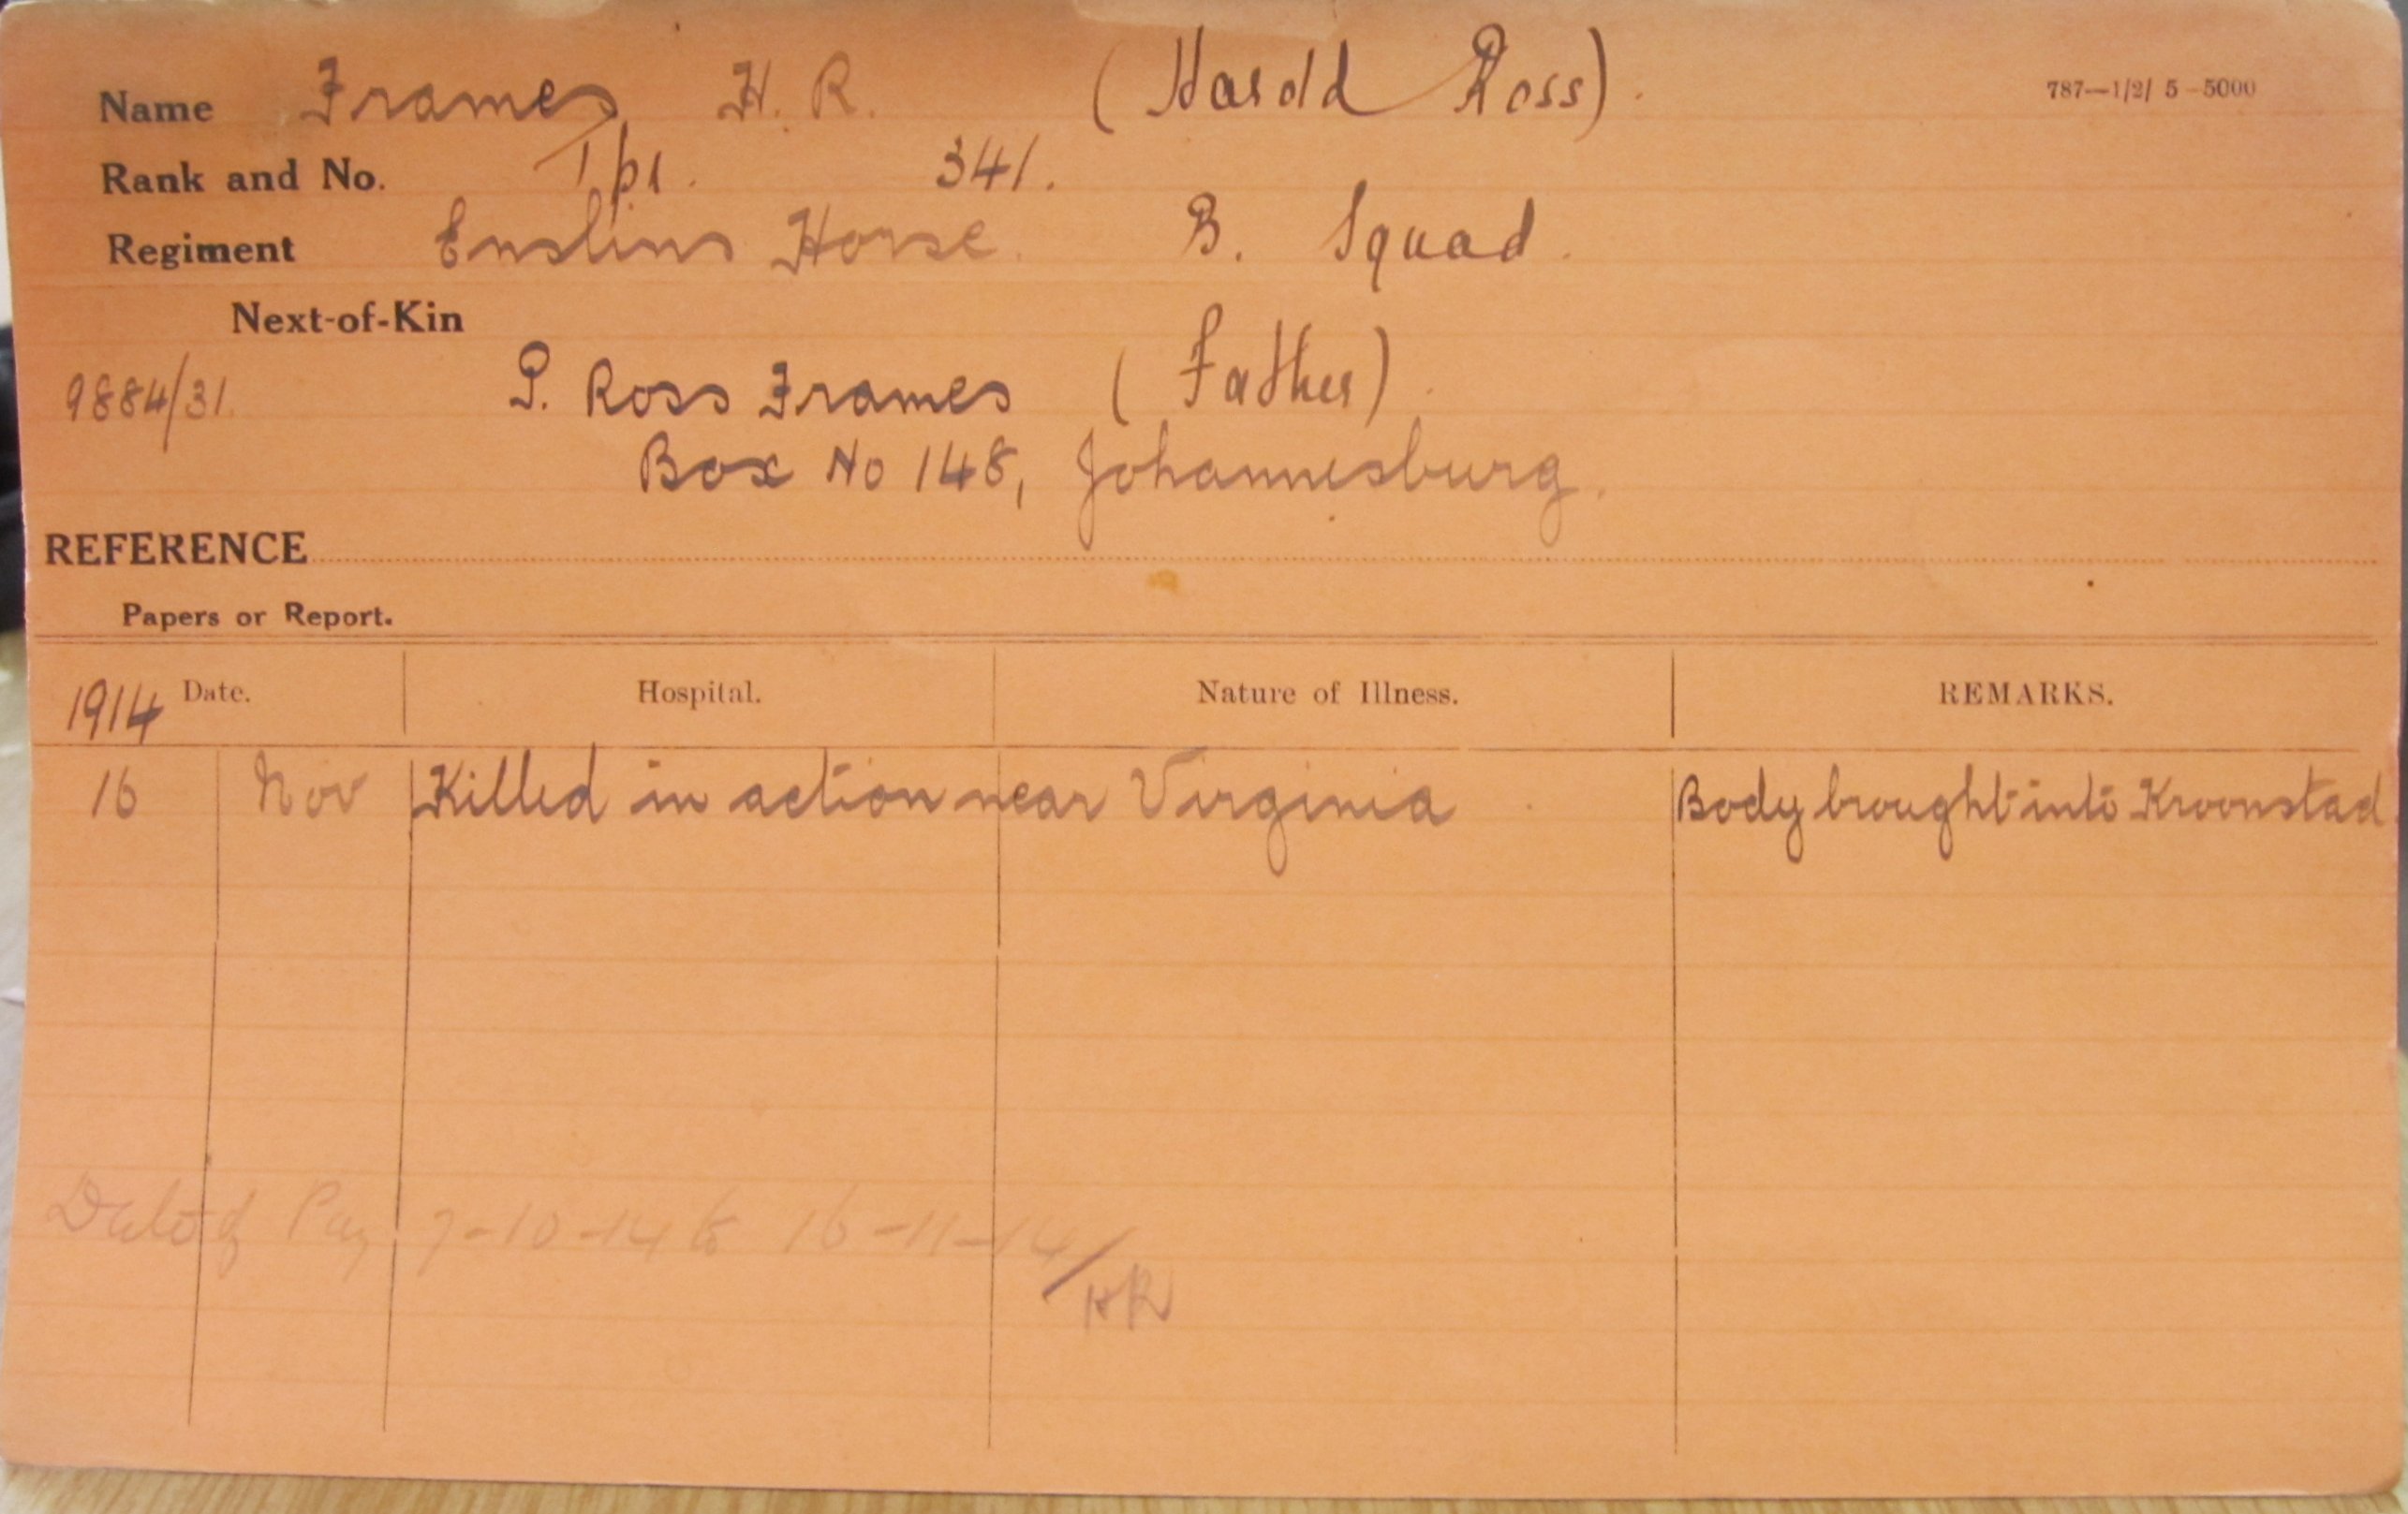 Name Frames, H. R. (Harold Ross). 787—1/2/ 5—5000
Rank and No. Tpr. 341.
Regiment Enslins Horse. B. Squad.
Next-of-Kin
9884/31. P. Ross Frames (Father).
Box No 148, Johannesburg.
REFERENCE
Papers or Report.
1914 Date. Hospital. Nature of Illness. REMARKS.
16 Nov Killed in action near Virginia Body brought into Kroonstad.
Date of Pay 7-10-14 to 16-11-14/
HR